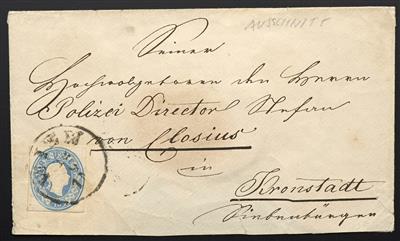 AUSSCHNITT
Seiner
Hochwolgeboren den Herrn
Polizei Director Stefan
von Closius
in
Kronstadt
Siebenbürgen